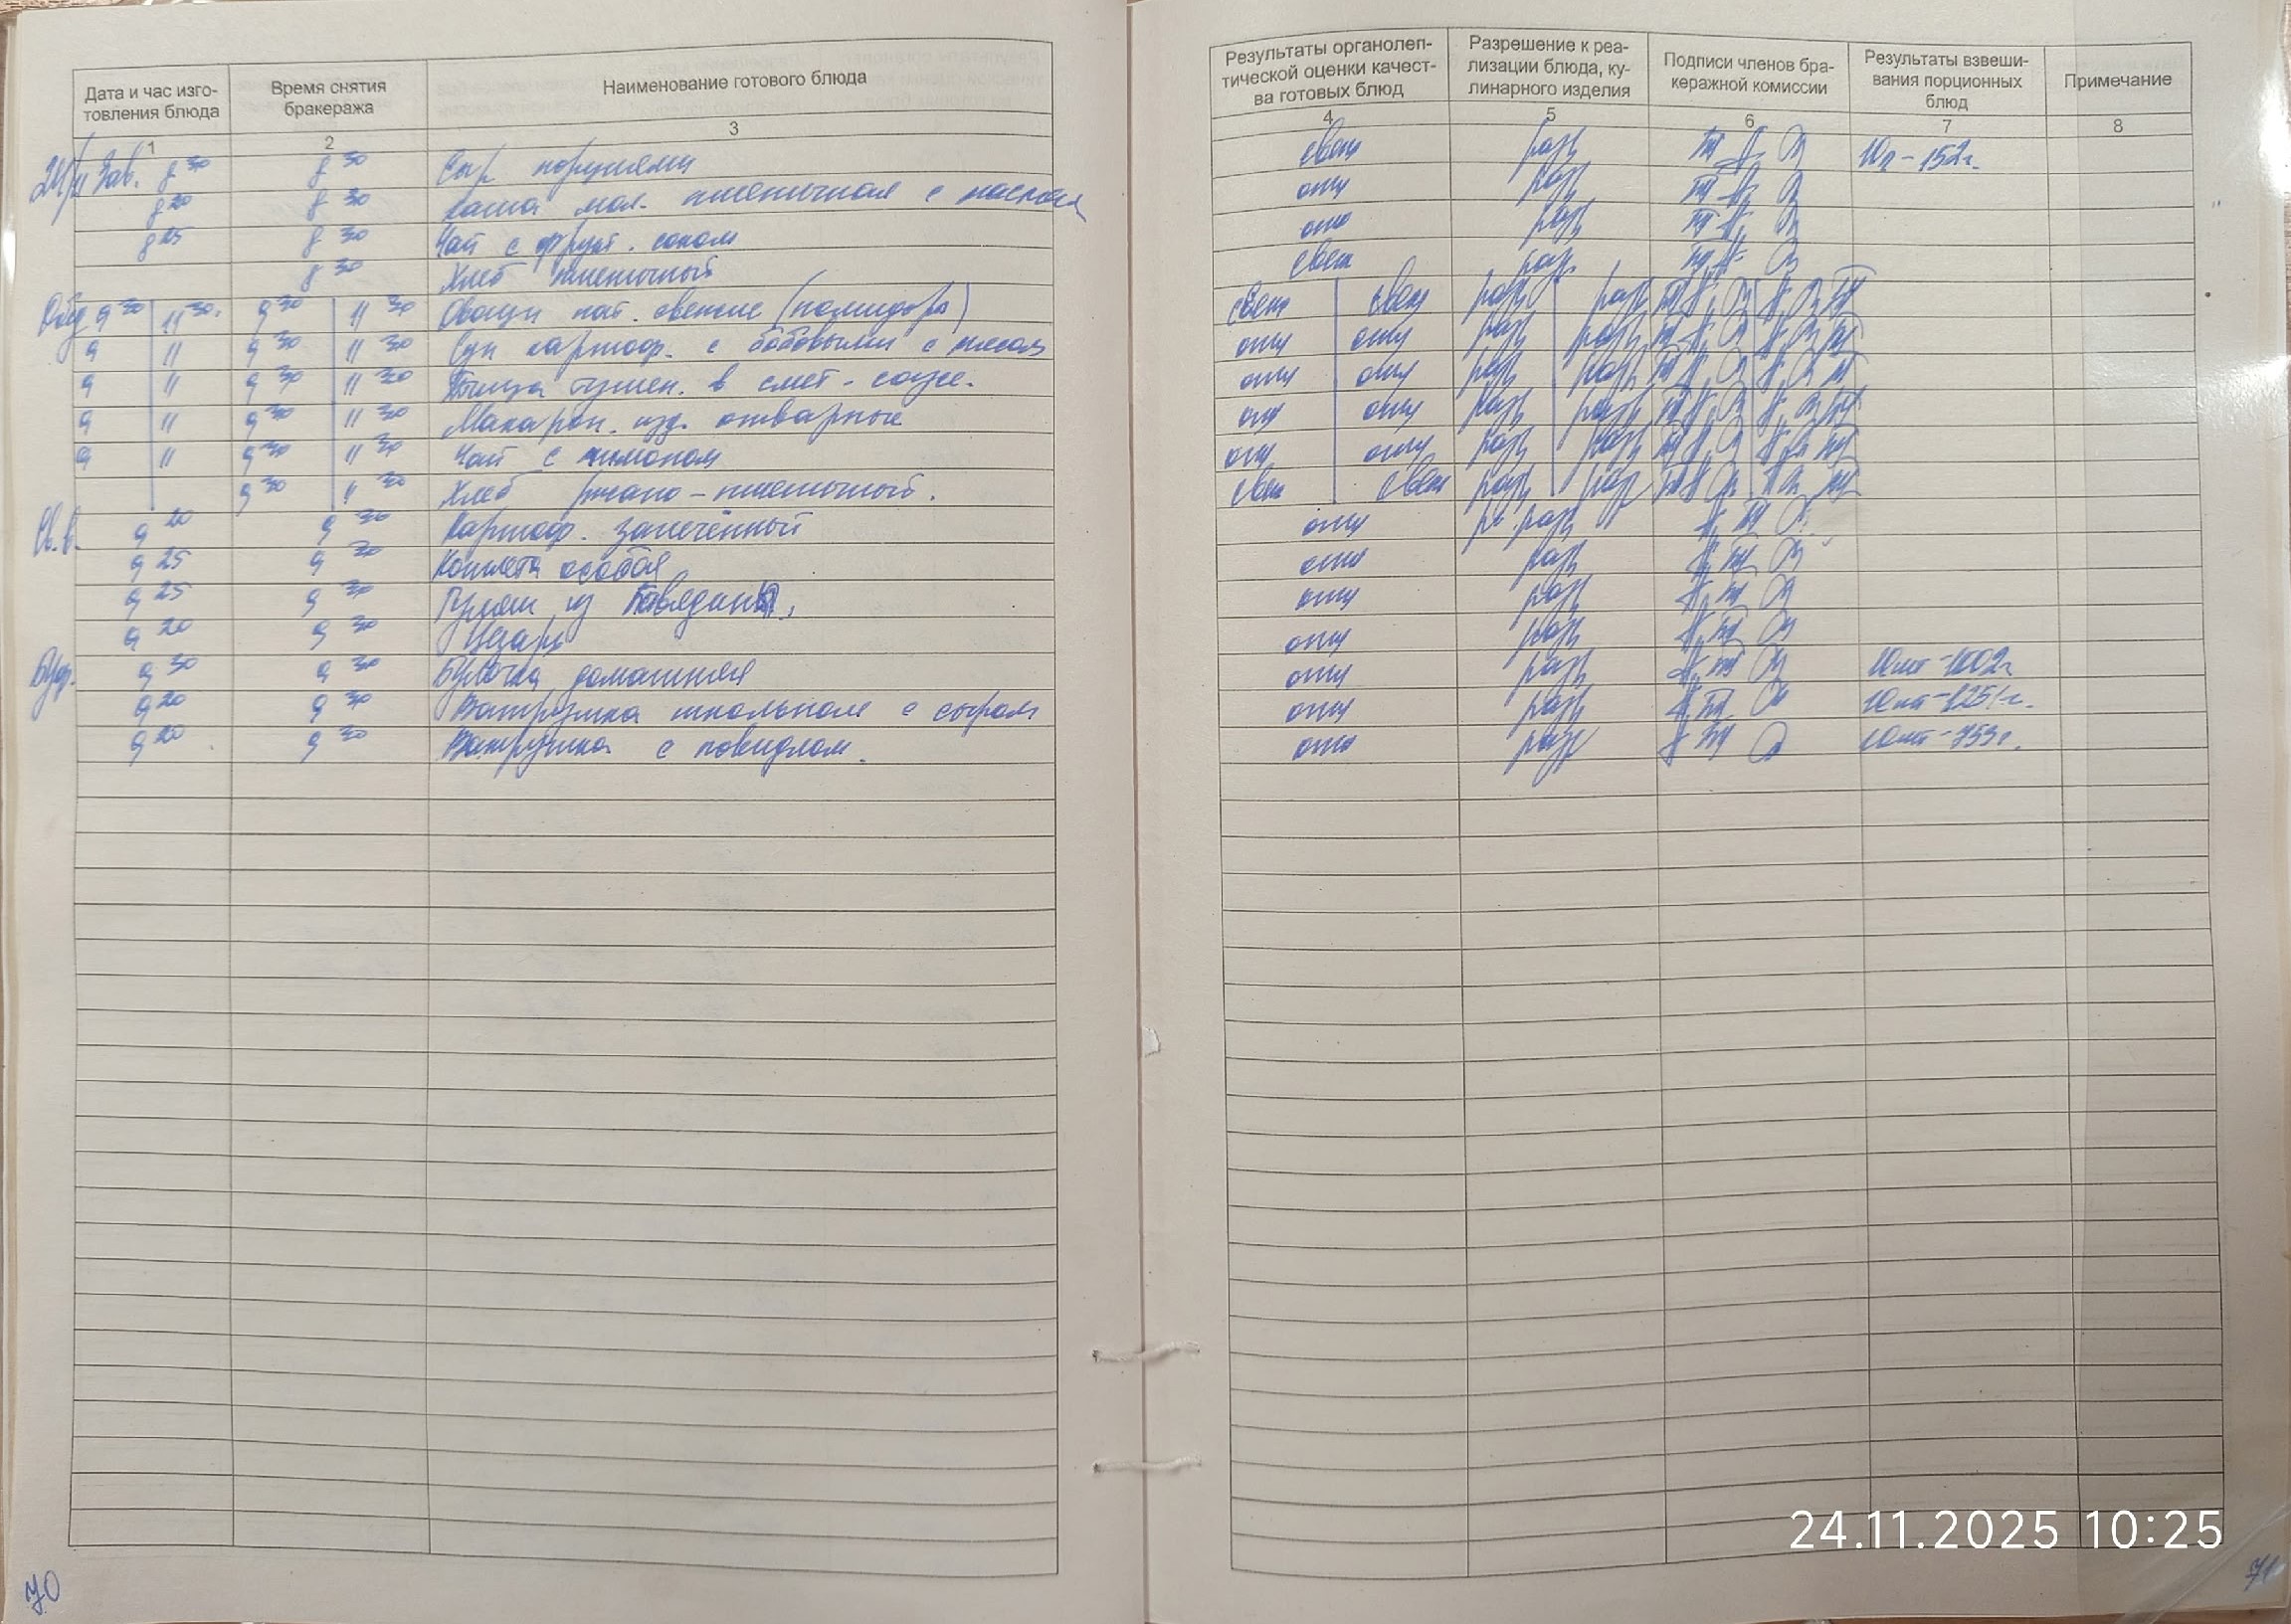 Дата и час изго-
товления блюда
Время снятия
бракеража
Наименование готового блюда
1 2 3
24/11 Зав. 8 30 8 30 Сыр порциями
8 20 8 30 Каша мол. пшеничная с маслом
8 25 8 30 Чай с фрукт. соком
8 30 Хлеб пшеничный
Обед 9 30 11 30. 9 30 11 30 Овощи нат. свежие (помидоры)
9 11 9 30 11 30 Суп картоф. с бобовыми с мясом
9 11 9 30 11 30 Птица тушен. в смет. соусе.
9 11 9 30 11 30 Макарон. изд. отварные
9 11 9 30 11 30 Чай с лимоном
9 30 11 30 Хлеб ржано-пшеничный.
Св.в. 9 20 9 30 Картоф. запечённый
9 25 9 30 Котлета особая
9 25 9 30 Гуляш из говядины,
9 20 9 30 Цезарь
Буф. 9 30 9 30 Булочка домашняя
9 20 9 30 Ватрушка школьная с сыром
9 20 9 30 Ватрушка с повидлом.
70
Результаты органолеп-
тической оценки качест-
ва готовых блюд
Разрешение к реа-
лизации блюда, ку-
линарного изделия
Подписи членов бра-
керажной комиссии
Результаты взвеши-
вания порционных
блюд
Примечание
4 5 6 7 8
свеж разр 10п - 152г.
отл разр
отл разр
свеж разр
свеж свеж разр разр
отл отл разр разр
отл отл разр разр
отл отл разр разр
отл отл разр разр
свеж свеж разр разр
отл разр
отл разр
отл разр
отл разр
отл разр 10шт - 1002г
отл разр 10шт - 1251г.
отл разр 10шт - 753г.
71
24.11.2025 10:25